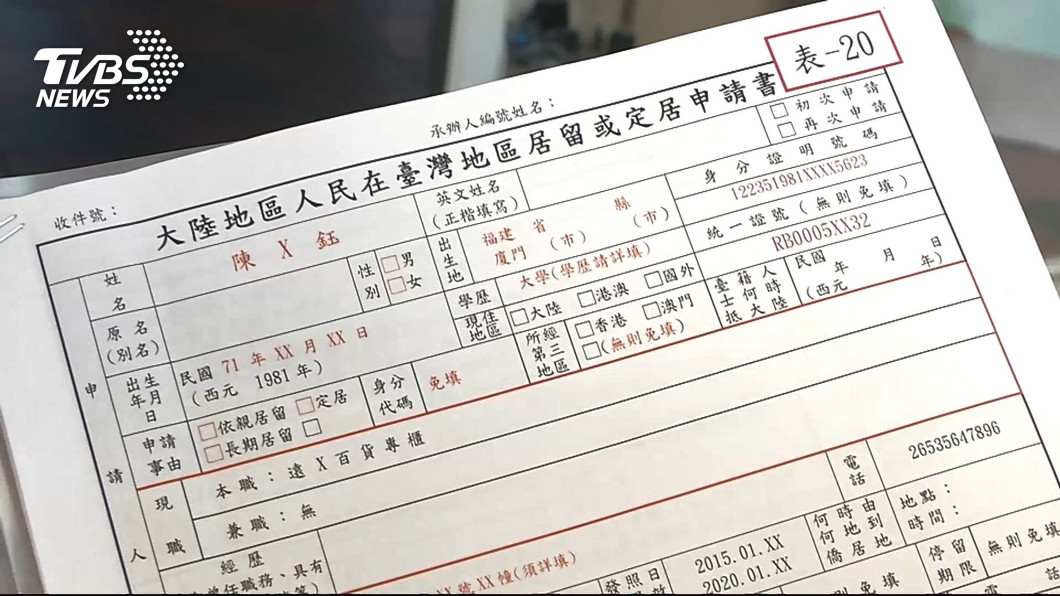 TVBS
NEWS
表-20
承辦人編號姓名：
收件號：
大陸地區人民在臺灣地區居留或定居申請書
□初次申請
□再次申請
申請人
姓名
陳X鈺
英文姓名
(正楷填寫)
身分證明號碼
122351981XXXX5623
原名
(別名)
性別
□男
□女
出生地
福建 省 縣
廈門 (市) (市)
統一證號(無則免填)
RB0005XX32
出生年月日
民國 71 年 XX 月 XX 日
(西元 1981 年)
學歷
大學(學歷請詳填)
現住地區
□大陸 □港澳 □國外
臺籍人士何時抵大陸
民國 年 月 日
(西元 年)
申請事由
□依親居留 □定居
□長期居留 □
身分代碼
免填
所經第三地區
□香港 □澳門
□(無則免填)
現職
本職：遠X百貨專櫃
兼職：無
電話
26535647896
經歷
號XX幢(須詳填)
發照日
2015.01.XX
2020.01.XX
何時由何地到僑居地
地點：
時間：
停留期限
無則免填
免填
電話